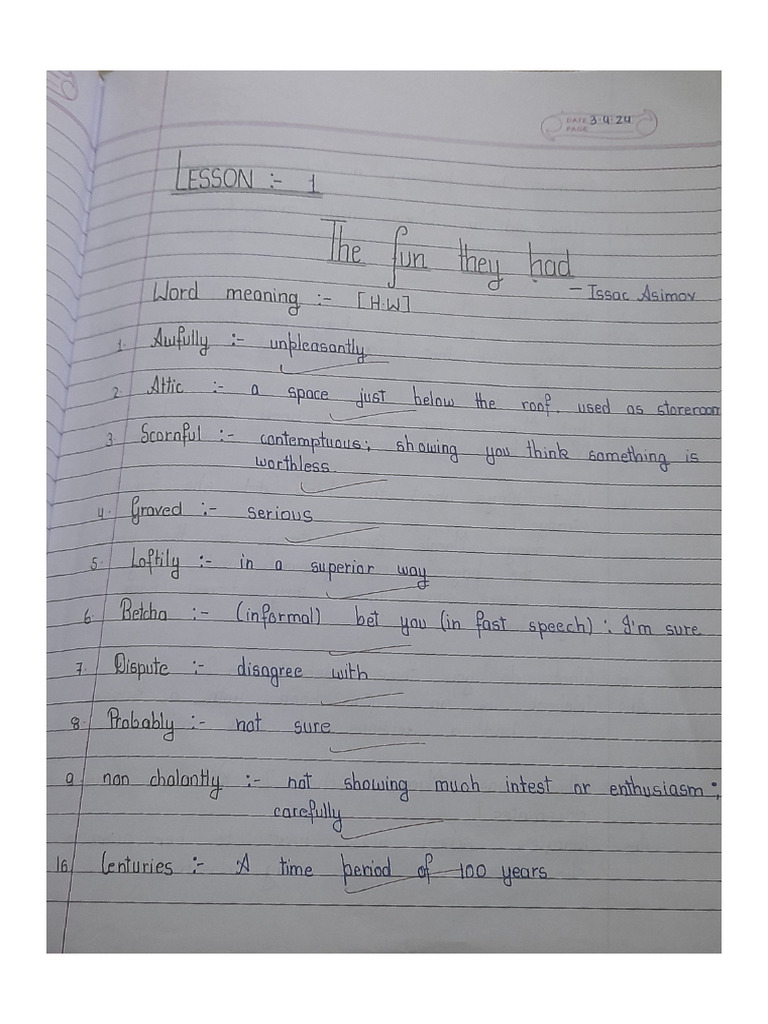 DATE 3.4.24
PAGE
LESSON :- 1
The fun they had
- Issac Asimov
Word meaning :- [H.W]
1. Awfully :- unpleasantly
2. Attic :- a space just below the roof, used as storeroom
3. Scornful :- contemptuous; showing you think something is
worthless
4. Graved :- serious
5. Loftily :- in a superior way
6. Betcha :- (informal) bet you (in fast speech) : I'm sure
7. Dispute :- disagree with
8. Probably :- not sure
9 non chalantly :- not showing much intest or enthusiasm;
carefully
10 Centuries :- A time period of 100 years